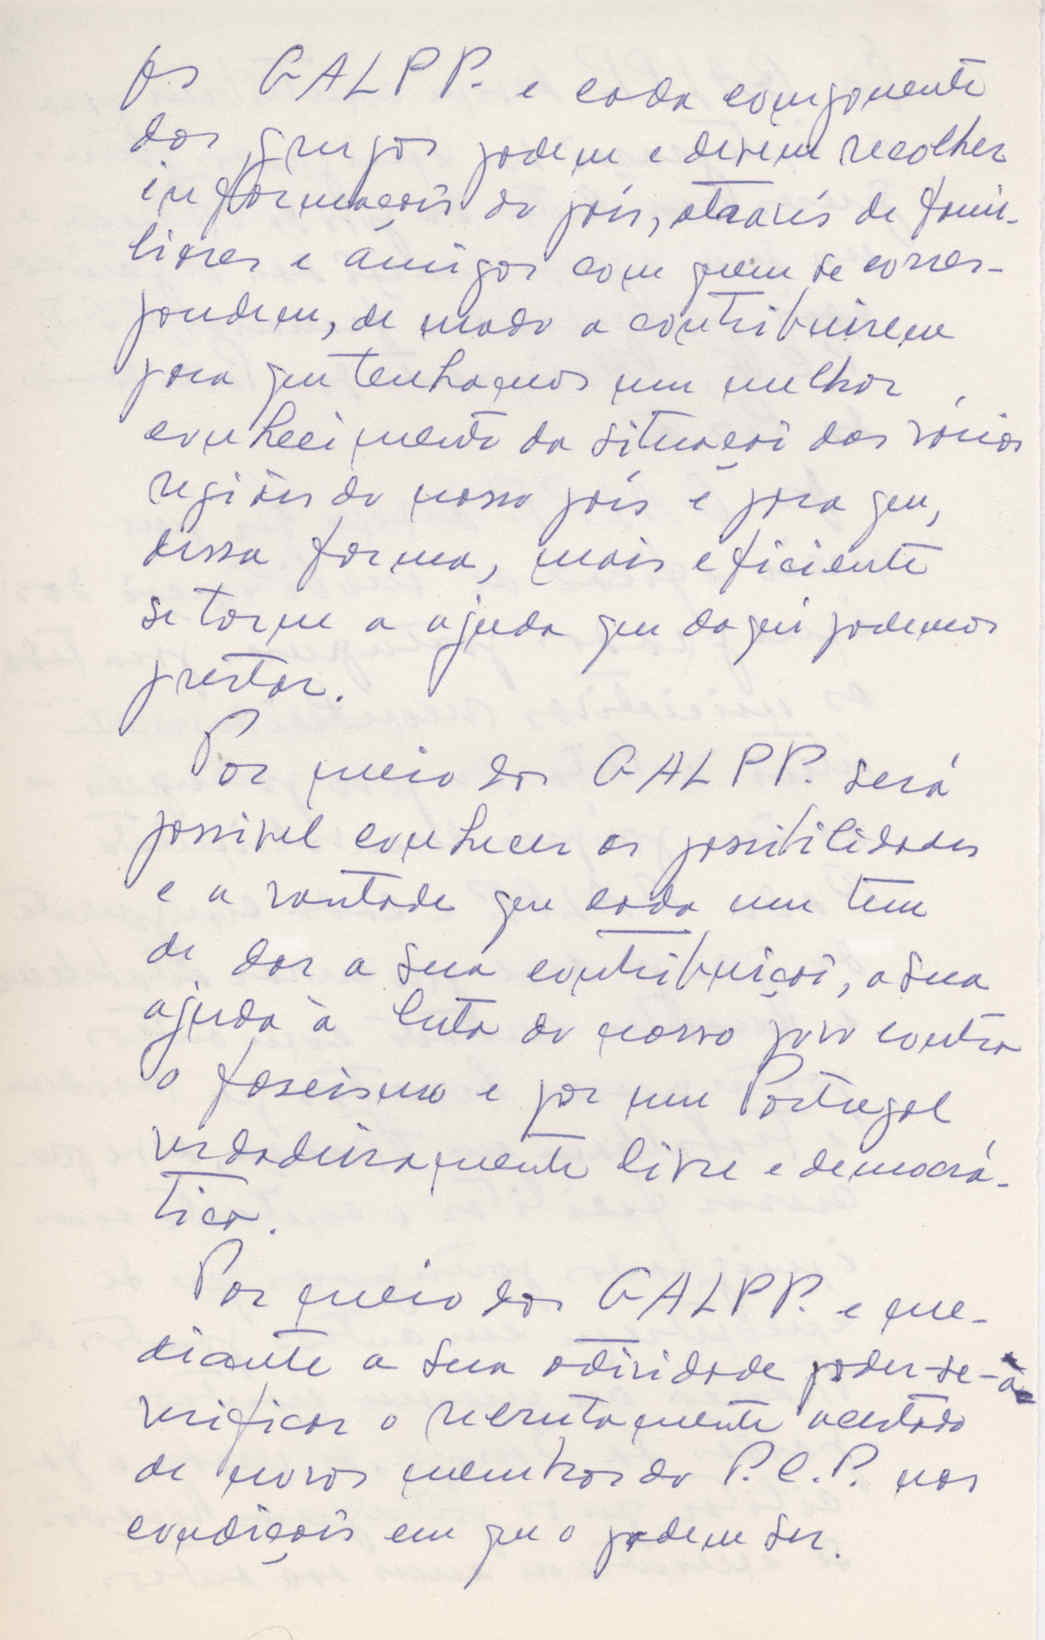 Os GALPP. e cada componente
dos grupos podem e devem recolher
informações do país, através de fami-
liares e amigos com quem se corres-
pondem, de modo a contribuirem
para que tenhamos um melhor
conhecimento da situação das várias
regiões do nosso país e para que,
dessa forma, mais eficiente
se torne a ajuda que daqui podemos
prestar.
Por meio dos GALPP. será
possivel conhecer as possibilidades
e a vontade que cada um tem
de dar a sua contribuição, a sua
ajuda à luta do nosso povo contra
o fascismo e por um Portugal
verdadeiramente livre e democrá-
tico.
Por meio dos GALPP. e me-
diante a sua actividade poder-se-á
verificar o recrutamento acertado
de novos membros do P.C.P. nas
condições em que o podem ser.